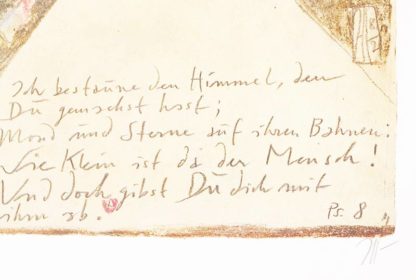 Ich bestaune den Himmel, den
Du gemacht hast;
Mond und Sterne auf ihren Bahnen:
Wie Klein ist da der Mensch!
Und doch gibst Du dich mit
ihm ab.
Ps. 8